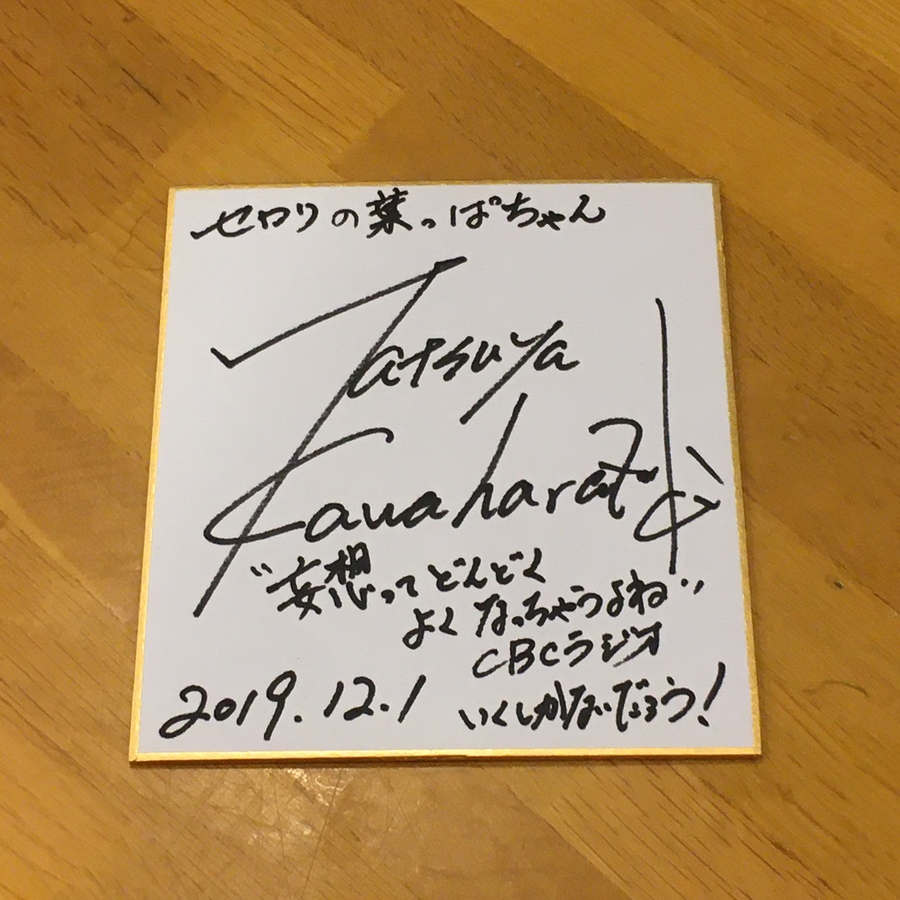 セロリの葉っぱちゃん
Tatsuya
Kawaharada
"妄想ってどんどく
よくなっちゃうよね"
CBCラジオ
2019.12.1
いくしかないだろう!